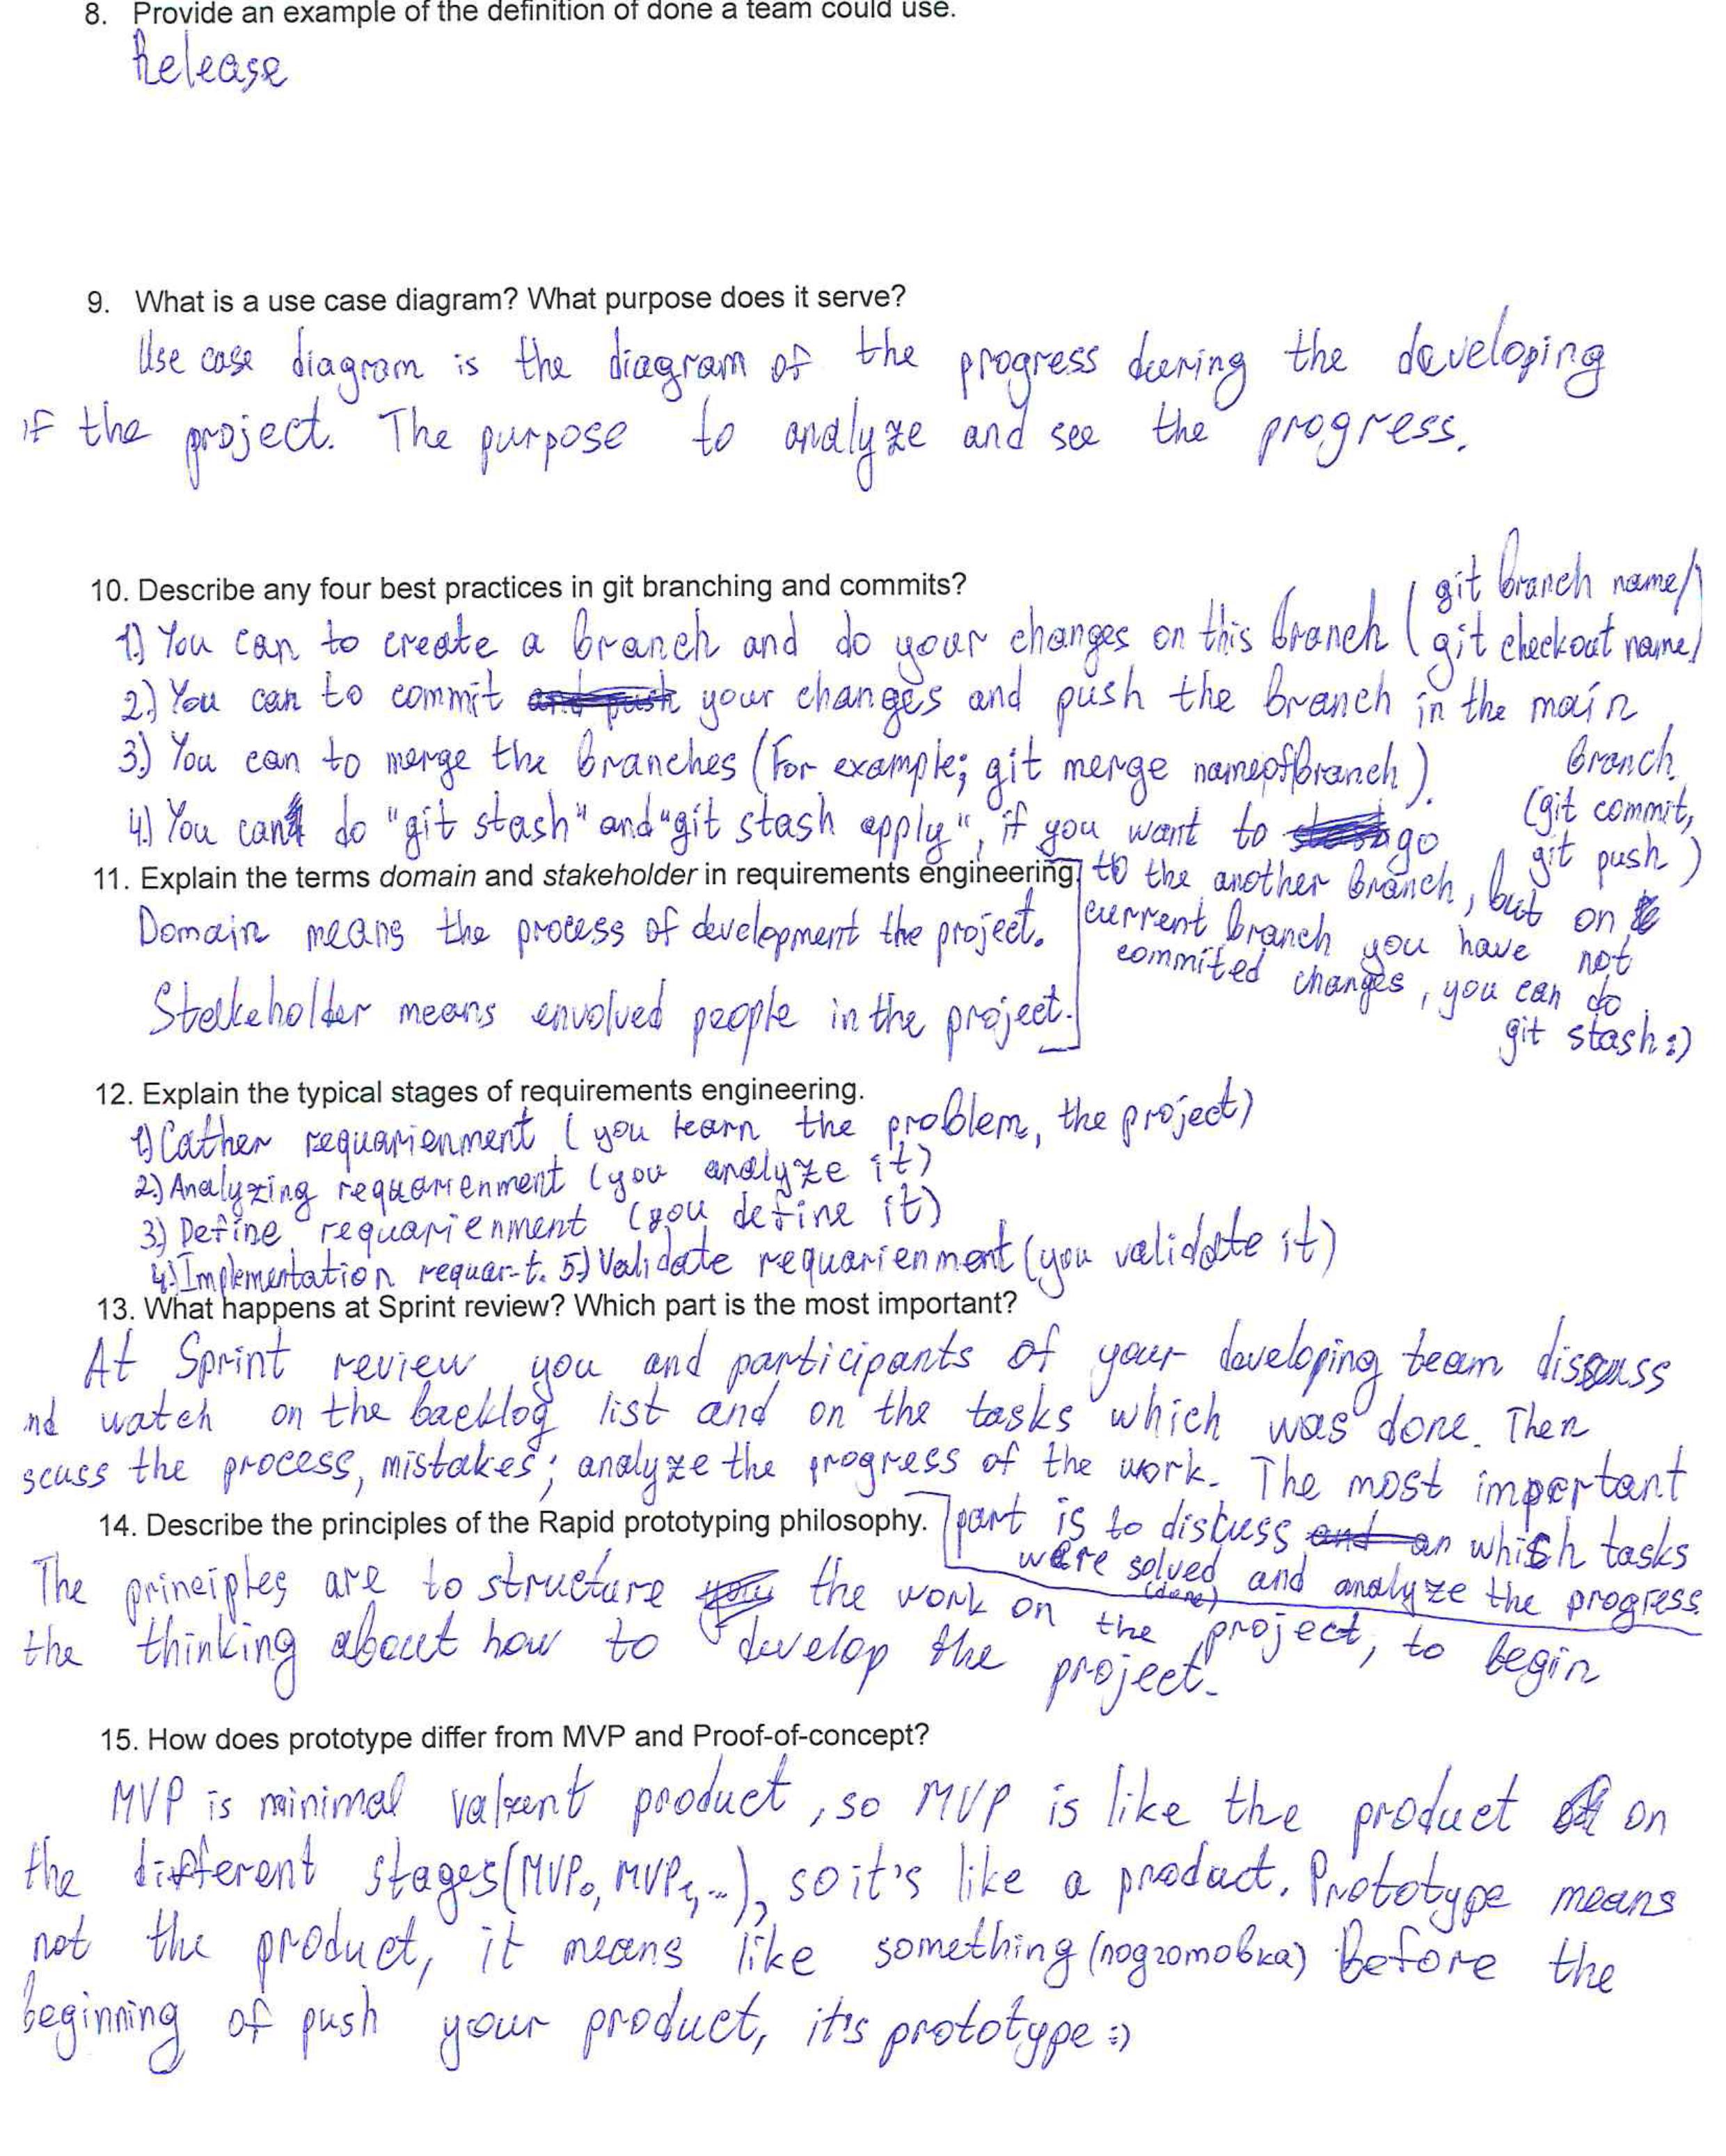 8. Provide an example of the definition of done a team could use.
Release
9. What is a use case diagram? What purpose does it serve?
Use case diagram is the diagram of the progress during the developing
if the project. The purpose to analyze and see the progress.
10. Describe any four best practices in git branching and commits?
1.) You can to create a branch and do your changes on this branch (git branch name/
git checkout name)
2.) You can to commit your changes and push the branch in the main
branch
(git commit,
git push)
3.) You can to merge the branches (For example; git merge nameofbranch).
4.) You can do "git stash" and "git stash apply", if you want to go
to the another branch, but on
current branch you have not
commited changes, you can do
git stash :)
11. Explain the terms domain and stakeholder in requirements engineering.
Domain means the process of development the project.
Stakeholder means envolved people in the project.
12. Explain the typical stages of requirements engineering.
1) Cather requarienment (you learn the problem, the project)
2.) Analyzing requarienment (you analyze it)
3.) Define requarienment (you define it)
4.) Implementation requar-t. 5.) Validate requarienment (you validate it)
13. What happens at Sprint review? Which part is the most important?
At Sprint review you and participants of your developing team discuss
nd watch on the backlog list and on the tasks which was done. Then
scuss the process, mistakes; analyze the progress of the work. The most important
part is to discuss on which tasks
were solved (done) and analyze the progress.
14. Describe the principles of the Rapid prototyping philosophy.
The principles are to structure the work on the project, to begin
the thinking about how to develop the project.
15. How does prototype differ from MVP and Proof-of-concept?
MVP is minimal product, so MVP is like the product on
the different stages (MVP0, MVP1, ...), so it's like a product. Prototype means
not the product, it means like something (подготовка) before the
beginning of push your product, it's prototype :)